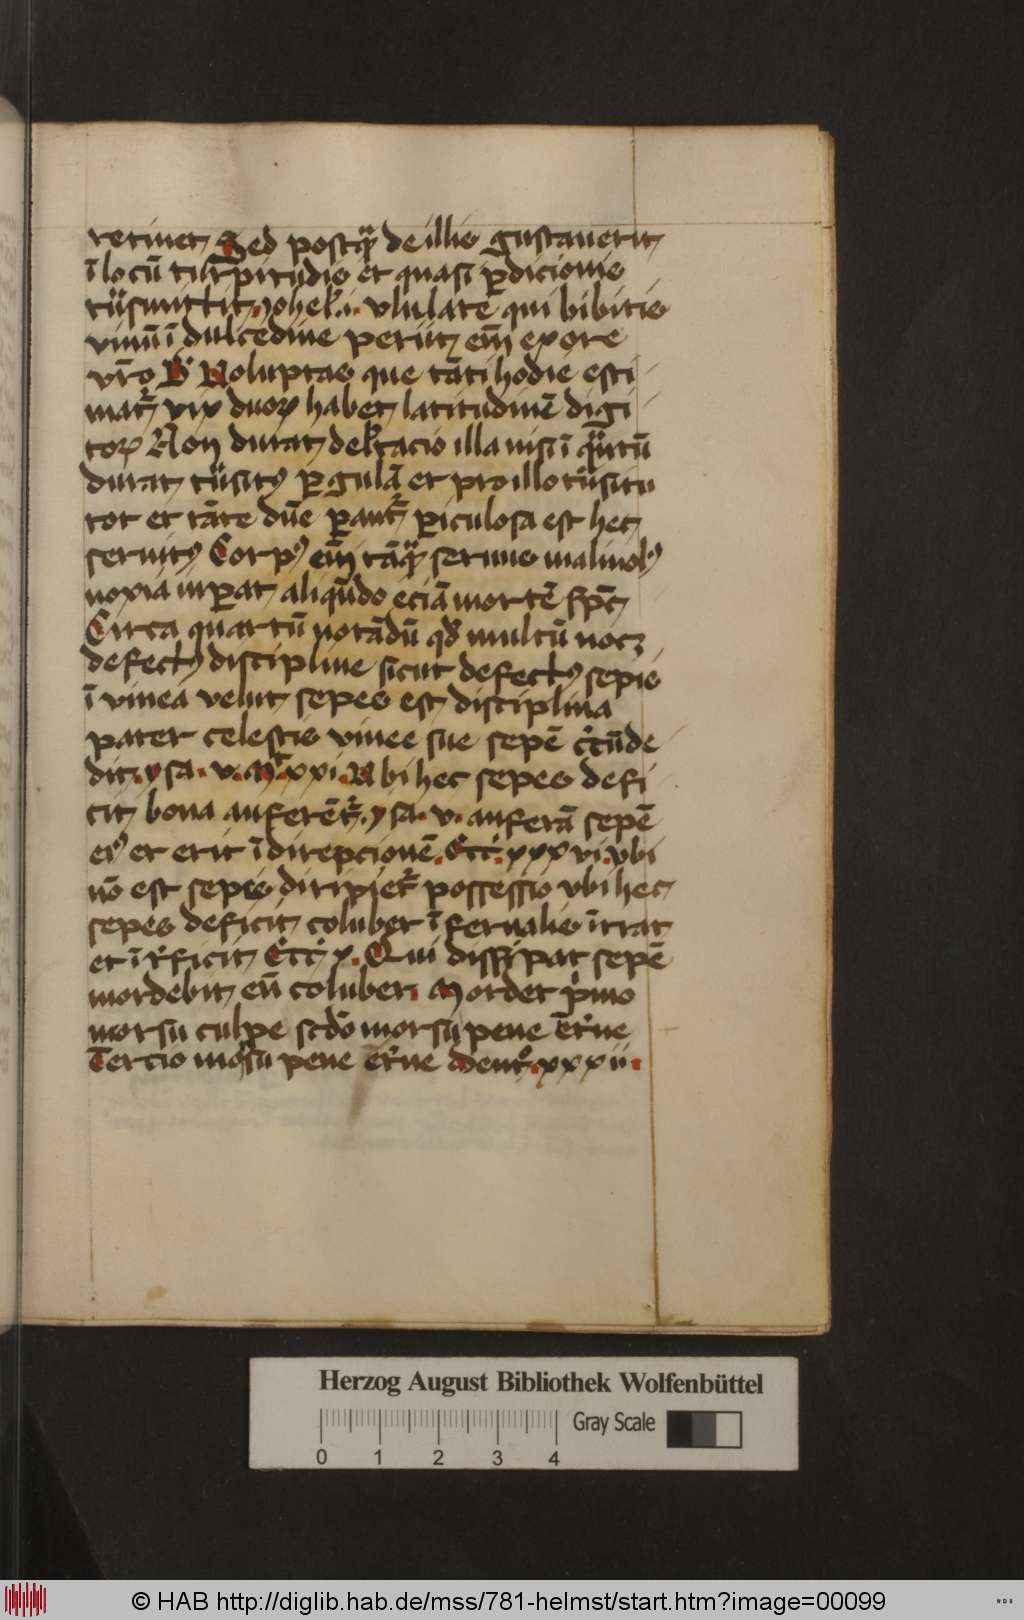 retinet Sed postqᷓ de illis gustauerit
ī locū turpitudīs et quasi ꝑdicionis
tᷓnsmittit. yohel .i. vlulate qui bibitis
vinū ī dulcedine periit em̄ ex ore
vr̄o Voluptas que tāti hodie esti
matᷣ vix duoꝝ habet latitudinē digi
toꝝ Non durat delctacio illa nisi ī qᷓntū
durat tᷓnsitꝯ ꝑ gulā et pro illo tᷓnsitu
tot et tāte dn̄e ꝑantᷣ ꝑiculosa est hec
seruitꝯ Corpꝯ em̄ tāqᷓ seruus maliuolꝯ
noxia inꝑat aliqn̄do eciā mortē
Circa quartū notādū qd̄ multū nocꝫ
defectꝯ discipline sicut defectꝯ sepis
ī vinea velut sepes est disciplina
pater celestis vinee sue sepē cͥcūde
dit. ysa. v. Mͭ xxi. Vbi hec sepes defi
cit bona auferētᷣ. ysa. v. auferā sepē
eiꝯ et erit ī direpcionē. Eccͥ. xxxvi. vbi
nō est sepes diripietᷣ possessio vbi hec
sepes deficit coluber īfernalis ītrat
et īt͛ficit Eccͥ x. Qui dissipat sepē
mordebit eū coluber. Mordet pͥmo
morsu culpe scdō morsu pene et͛ne
Tercio morsu pene et͛ne Deutꝰ. xxxii.
Herzog August Bibliothek Wolfenbüttel
0 1 2 3 4 Gray Scale
© HAB http://diglib.hab.de/mss/781-helmst/start.htm?image=00099